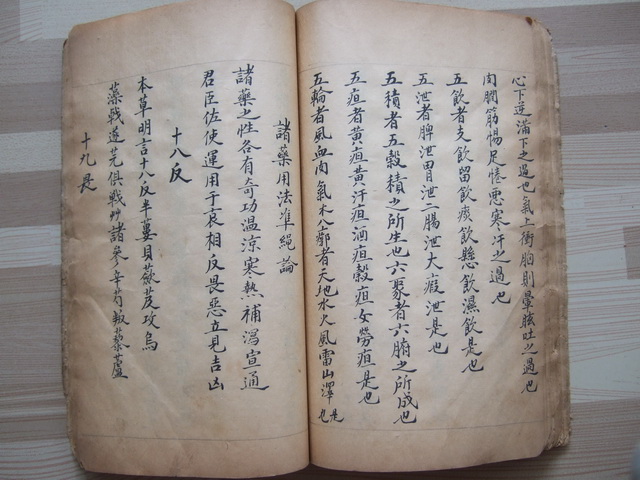 心下逆滿下之過也氣上衝胸則暈眩吐之過也
肉瞤筋惕足惓惡寒汗之過也
五飲者支飲留飲痰飲懸飲濕飲是也
五泄者脾泄胃泄二腸泄大瘕泄是也
五積者五穀積之所生也六聚者六腑之所成也
五疸者黃疸黃汗疸酒疸穀疸女勞疸是也
五輪者風血肉氣水八廓者天地水火風雷山澤是也
諸藥用法準繩論
諸藥之性各有奇功温涼寒熱補瀉宣通
君臣佐使運用于衷相反畏惡立見吉凶
十八反
本草明言十八反半蔞貝蘞芨攻烏
藻戟遂芫俱戰艸諸參辛芍叛藜蘆
十九畏